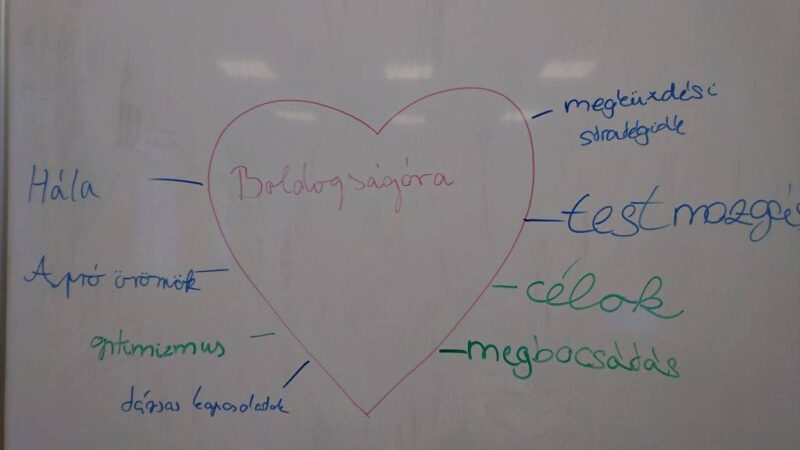 Boldogságóra
Hála
Apró örömök
optimizmus
társas kapcsolatok
megküzdési
stratégiák
testmozgás
célok
megbocsátás